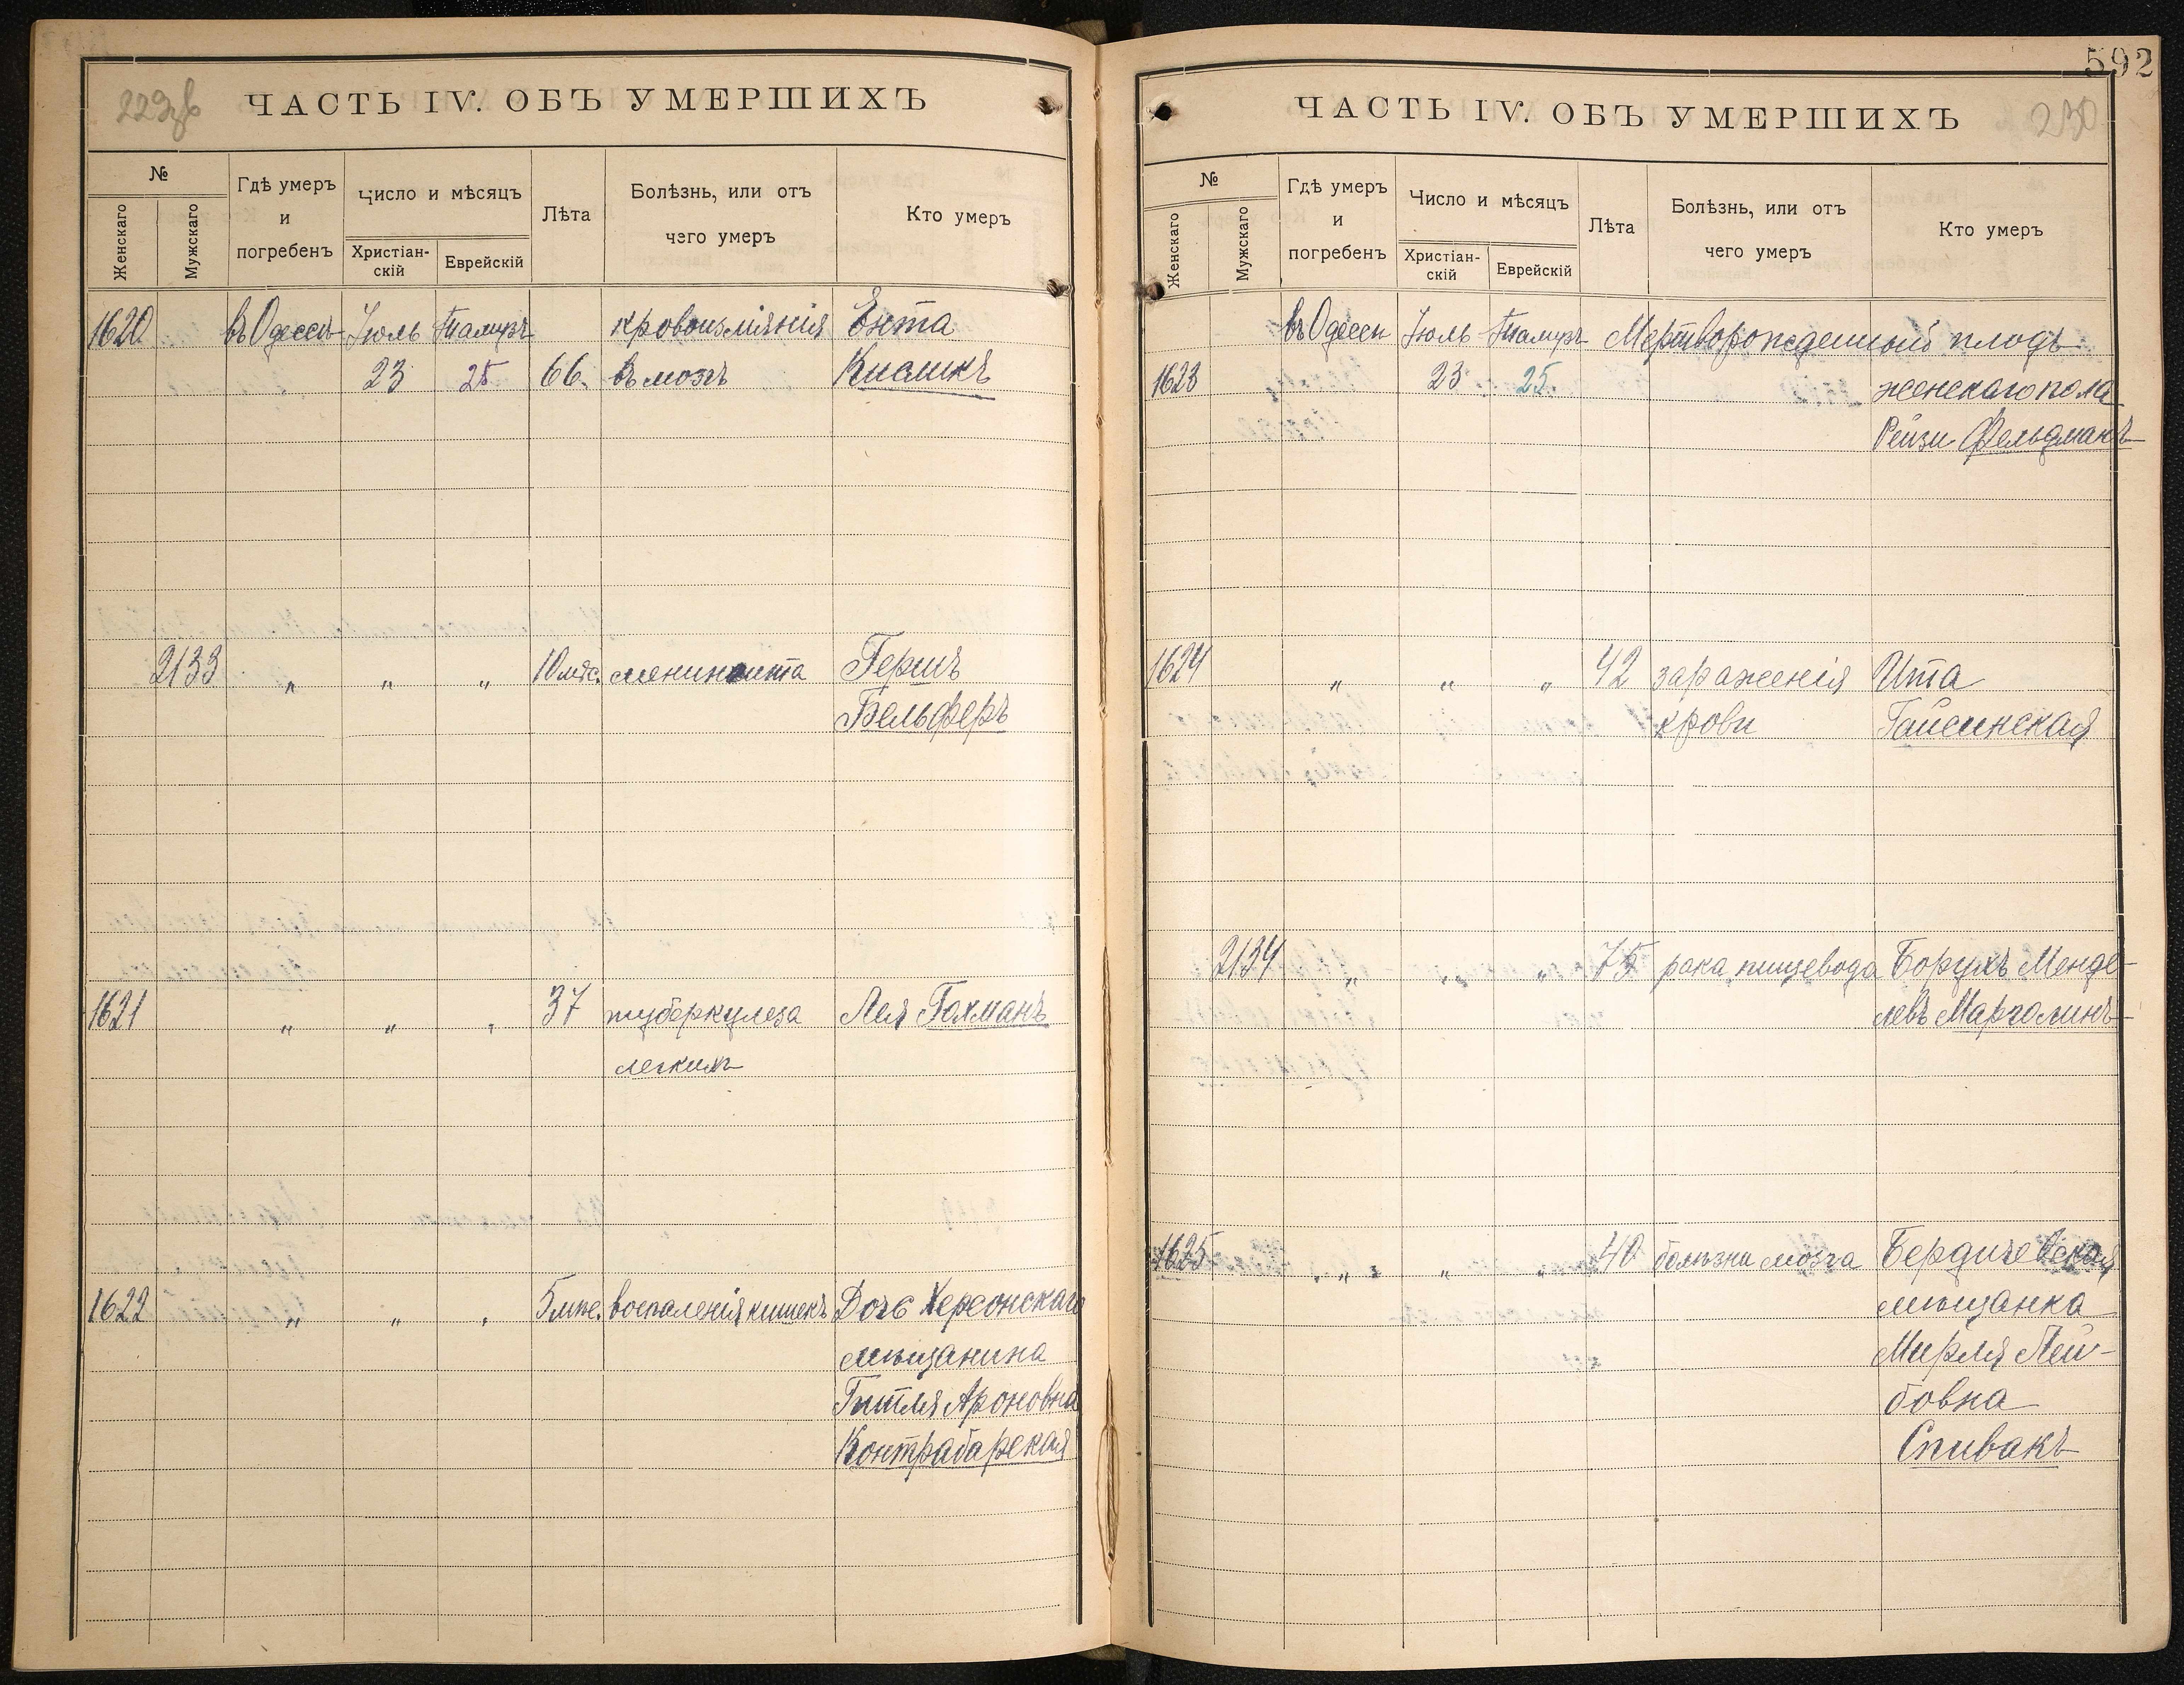 229 об
ЧАСТЬ IV. ОБЪ УМЕРШИХЪ
№
Женскаго
Мужскаго
Гдѣ умеръ
и
погребенъ
Число и мѣсяцъ
Христіан-
скій
Еврейскій
Лѣта
Болѣзнь, или отъ
чего умеръ
Кто умеръ
1620 въ Одессѣ Іюль Тамузъ кровоизліянія Ента
23 25 66. въ мозгъ Кисликъ
2133 " " " 10 мѣс. менингита Гершъ
Бельферъ
1621 " " " 37 туберкулеза Лея Гохманъ
легкихъ
1622 " " " 5 мѣс. воспаленія кишекъ Дочь Херсонскаго
мѣщанина
Гитля Ароновна
Контрабарская
592
ЧАСТЬ IV. ОБЪ УМЕРШИХЪ
230
№
Женскаго
Мужскаго
Гдѣ умеръ
и
погребенъ
Число и мѣсяцъ
Христіан-
скій
Еврейскій
Лѣта
Болѣзнь, или отъ
чего умеръ
Кто умеръ
въ Одессѣ Іюль Тамузъ Мертворожденный плодъ
1623 23 25. женскаго пола
Рейзи Фельдманъ
1624 " " " 42 зараженія Ита
крови Гайсинская
2134 " " " 75 рака пищевода Борухъ Менде-
левъ Марголинъ
1625 " " " 40 болѣзни мозга Бердичевская
мѣщанка
Мирля Лей-
бовна
Спивакъ